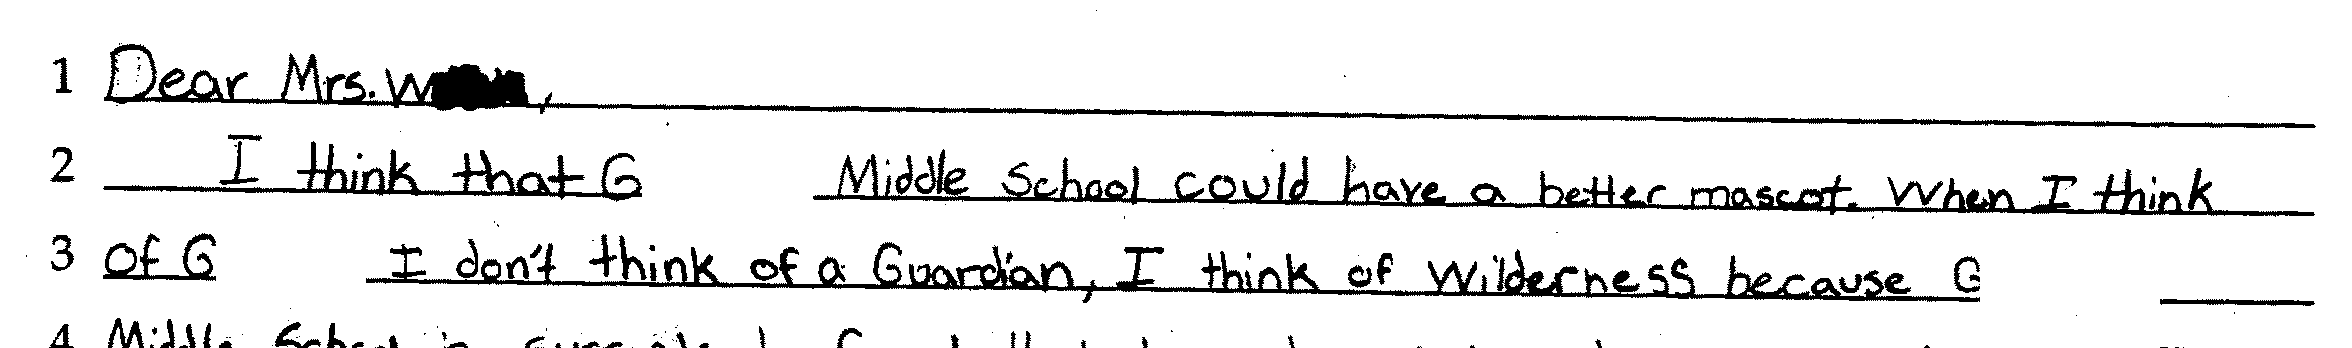 1 Dear Mrs. W
2 I think that G Middle School could have a better mascot. When I think
3 Of G I don't think of a Guardian, I think of Wilderness because G
4 Middle School is